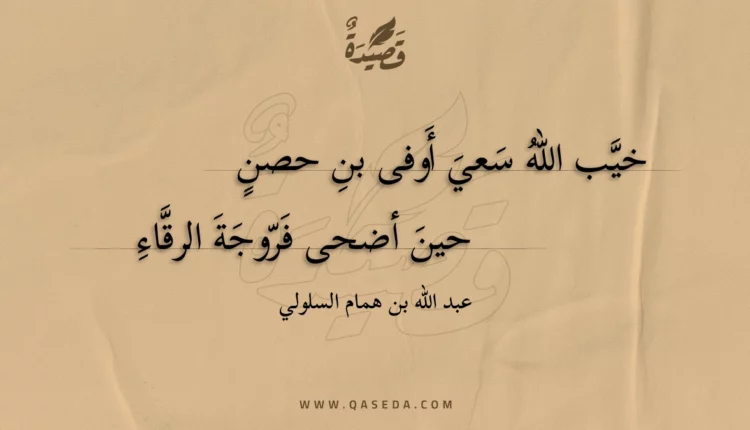 قَصِيْدَةٌ
خيَّب اللهُ سَعيَ أَوفى بنِ حصنٍ
حينَ أضحى فَرّوجَةَ الرقَّاءِ
عبد الله بن همام السلولي
WWW.QASEDA.COM